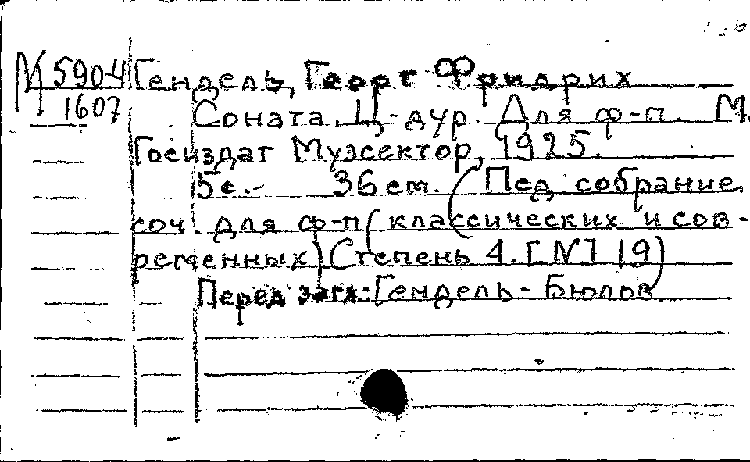 М 590-4 Гендель, Георг Фридрих
1607 Соната. Ц-дур. Для ф-п. М.
Госиздат Музсектор, 1925.
5с.- 36см. (Пед собрание
соч. для ф-п (классических и сов-
ременных) Степень 4. [N] 19)
Перед загл: Гендель - Бюлов.